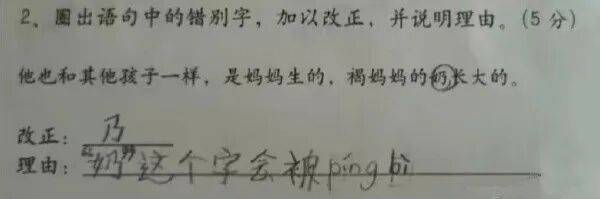 2、圈出语句中的错别字，加以改正，并说明理由。(5 分)
他也和其他孩子一样，是妈妈生的，褐妈妈的奶长大的。
改正：乃
理由："奶"这个字会被pīng bì